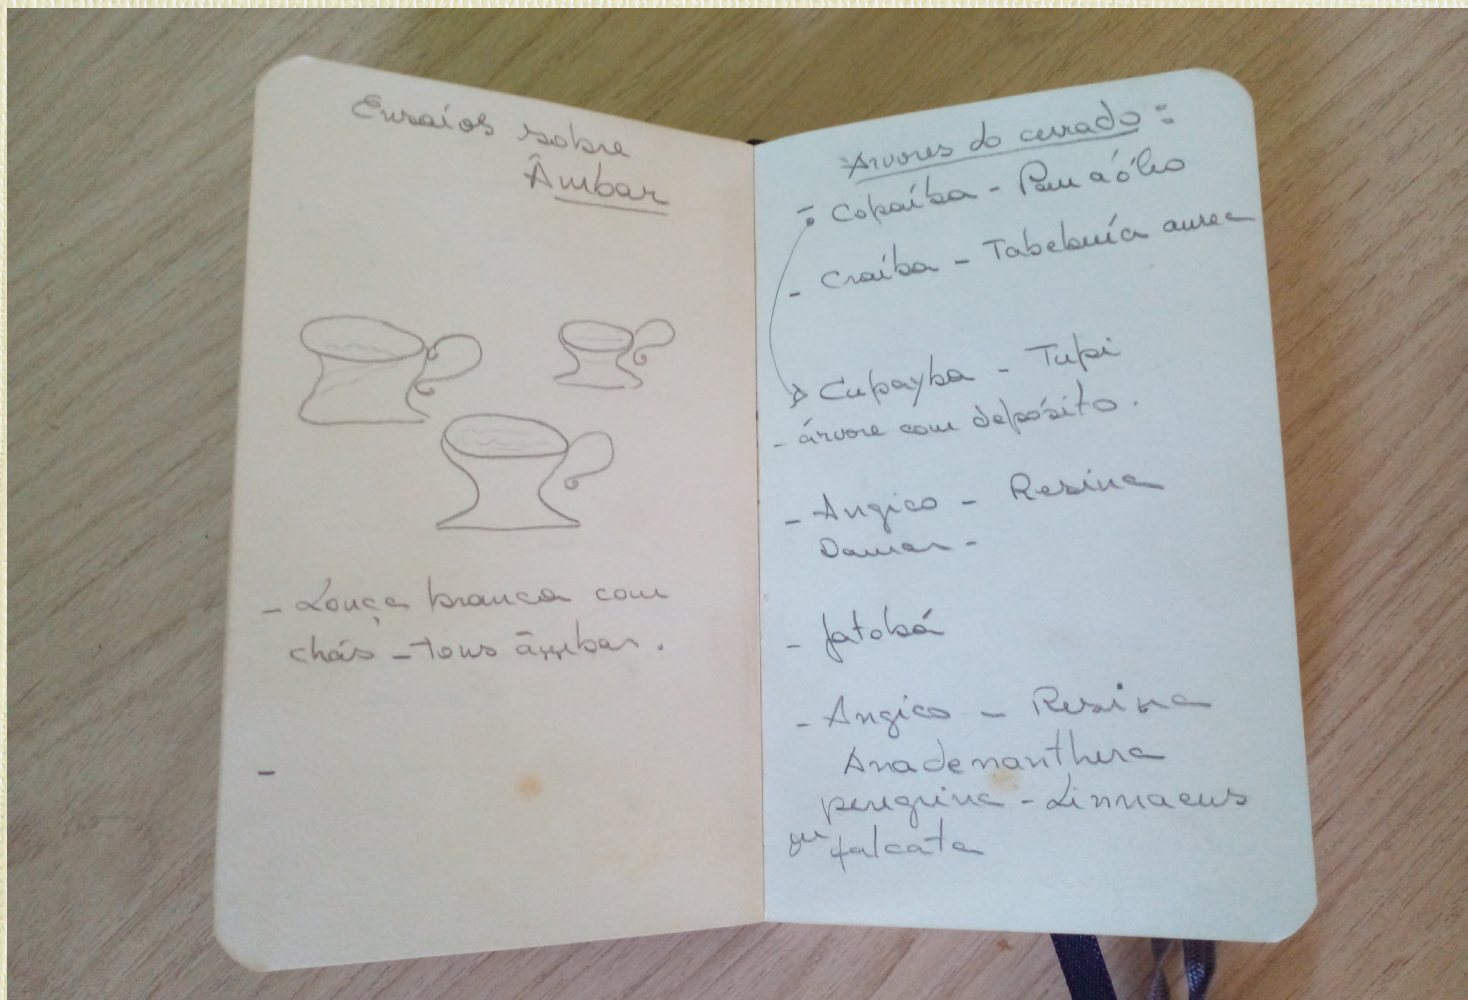 Ensaios sobre
Âmbar
- Louça branca com
chás - Tons âmbar.
-
Árvores do cerrado:
- Copaíba - Pau a óleo
- Craíba - Tabebuía aurea
Cupayba - Tupi
- árvore com depósito.
- Angico - Resina
Damar -
- Jatobá
- Angico - Resina
Anadenanthera
peregrina - Linnaeus
ou falcata